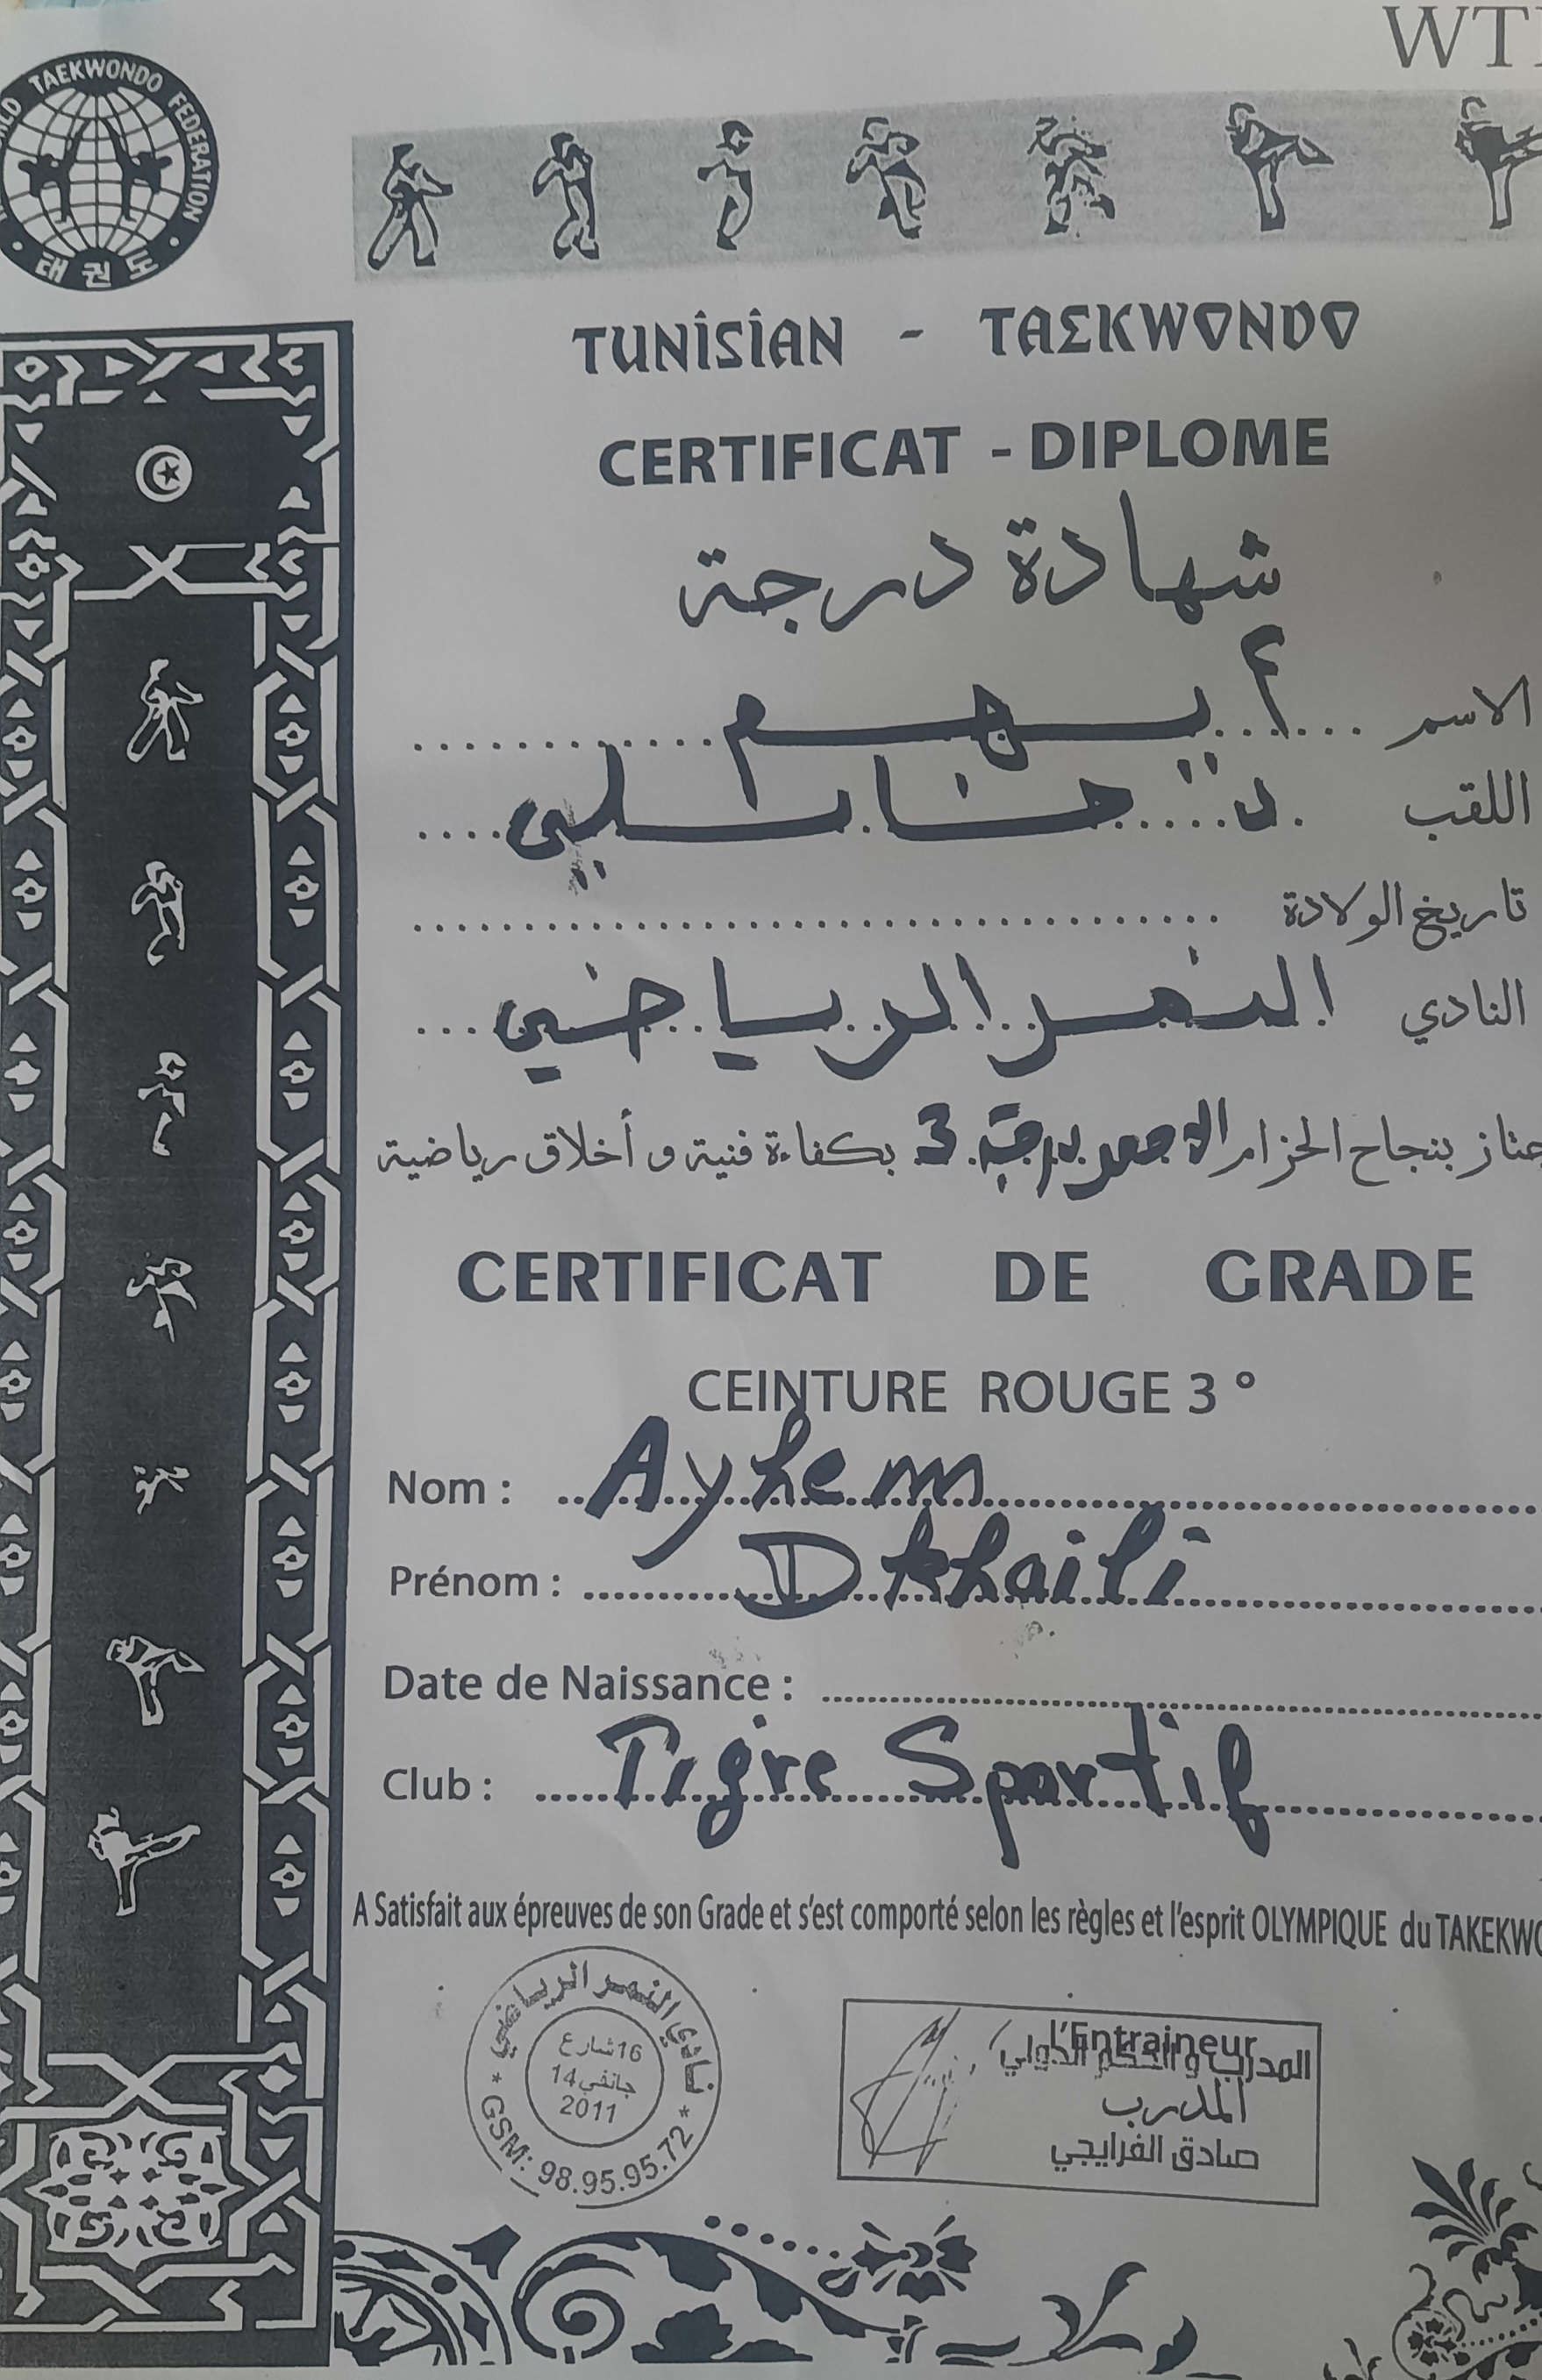 TAEKWONDO FEDERATION
태권도
TUNISIAN - TAEKWONDO
CERTIFICAT - DIPLOME
شهادة درجة
الاسم ..... أيهم .....
اللقب ..... دخايلي .....
تاريخ الولادة ..........
النادي ..... النمر الرياضي .....
بنجاح الحزام الأحمر درجة 3 بكفاءة فنية و أخلاق رياضية
CERTIFICAT DE GRADE
CEINTURE ROUGE 3 °
Nom : Ayhem
Prénom : Dkhaili
Date de Naissance :
Club : Tigre Sportif
A Satisfait aux épreuves de son Grade et s'est comporté selon les règles et l'esprit OLYMPIQUE du
نادي النمر الرياضي
16 شارع
14 جانفي
2011
GSM: 98.95.95.72
l'Entraineur
المدرب والحكم الدولي
المدرب
صادق الفرايجي